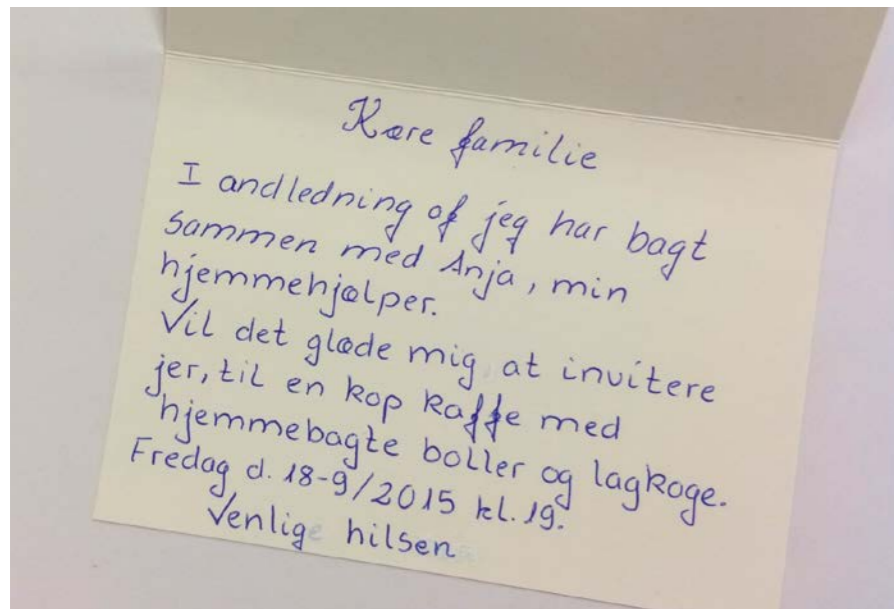 Kære familie
I andledning af jeg har bagt
sammen med Anja, min
hjemmehjælper.
Vil det glæde mig at invitere
jer, til en kop kaffe med
hjemmebagte boller og lagkage.
Fredag d. 18-9/2015 kl. 19.
Venlige hilsen